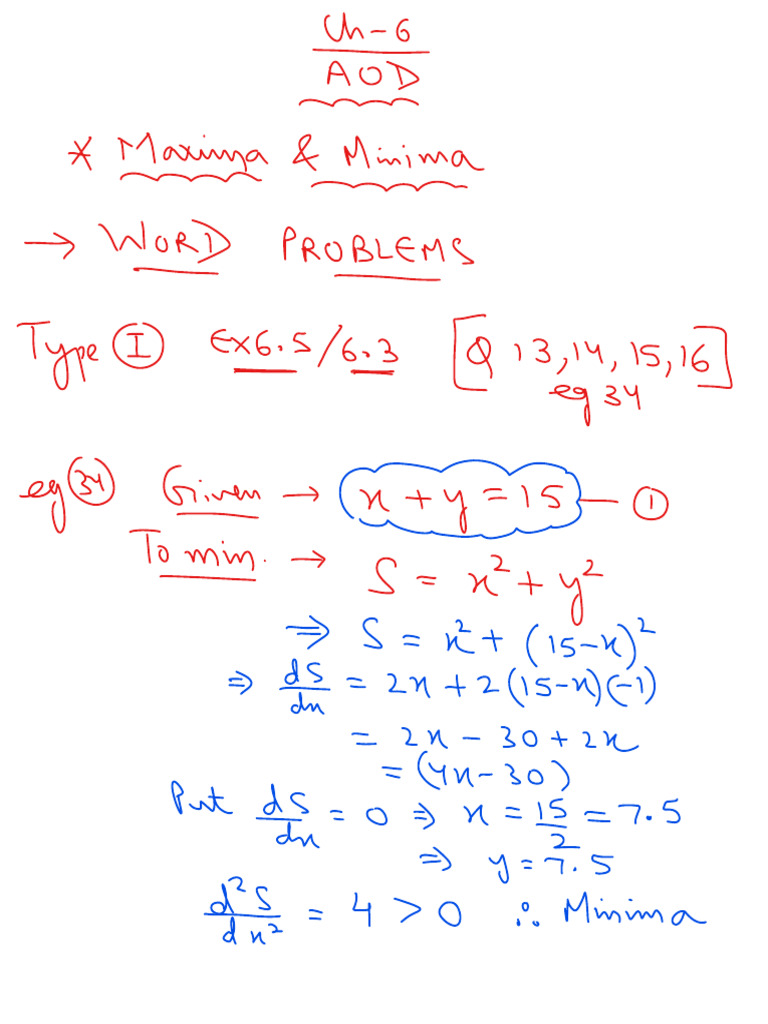 Ch-6
AOD
* Maxima & Minima
→ WORD PROBLEMS
Type I Ex6.5/6.3 [Q 13,14,15,16]
eg 34
eg 34 Given → x + y = 15 — 1
To min. → S = x² + y²
⇒ S = x² + (15-x)²
⇒ dS/dx = 2x + 2(15-x)(-1)
= 2x - 30 + 2x
= (4x-30)
Put dS/dx = 0 ⇒ x = 15/2 = 7.5
⇒ y = 7.5
d²S/dx² = 4 > 0 ∴ Minima